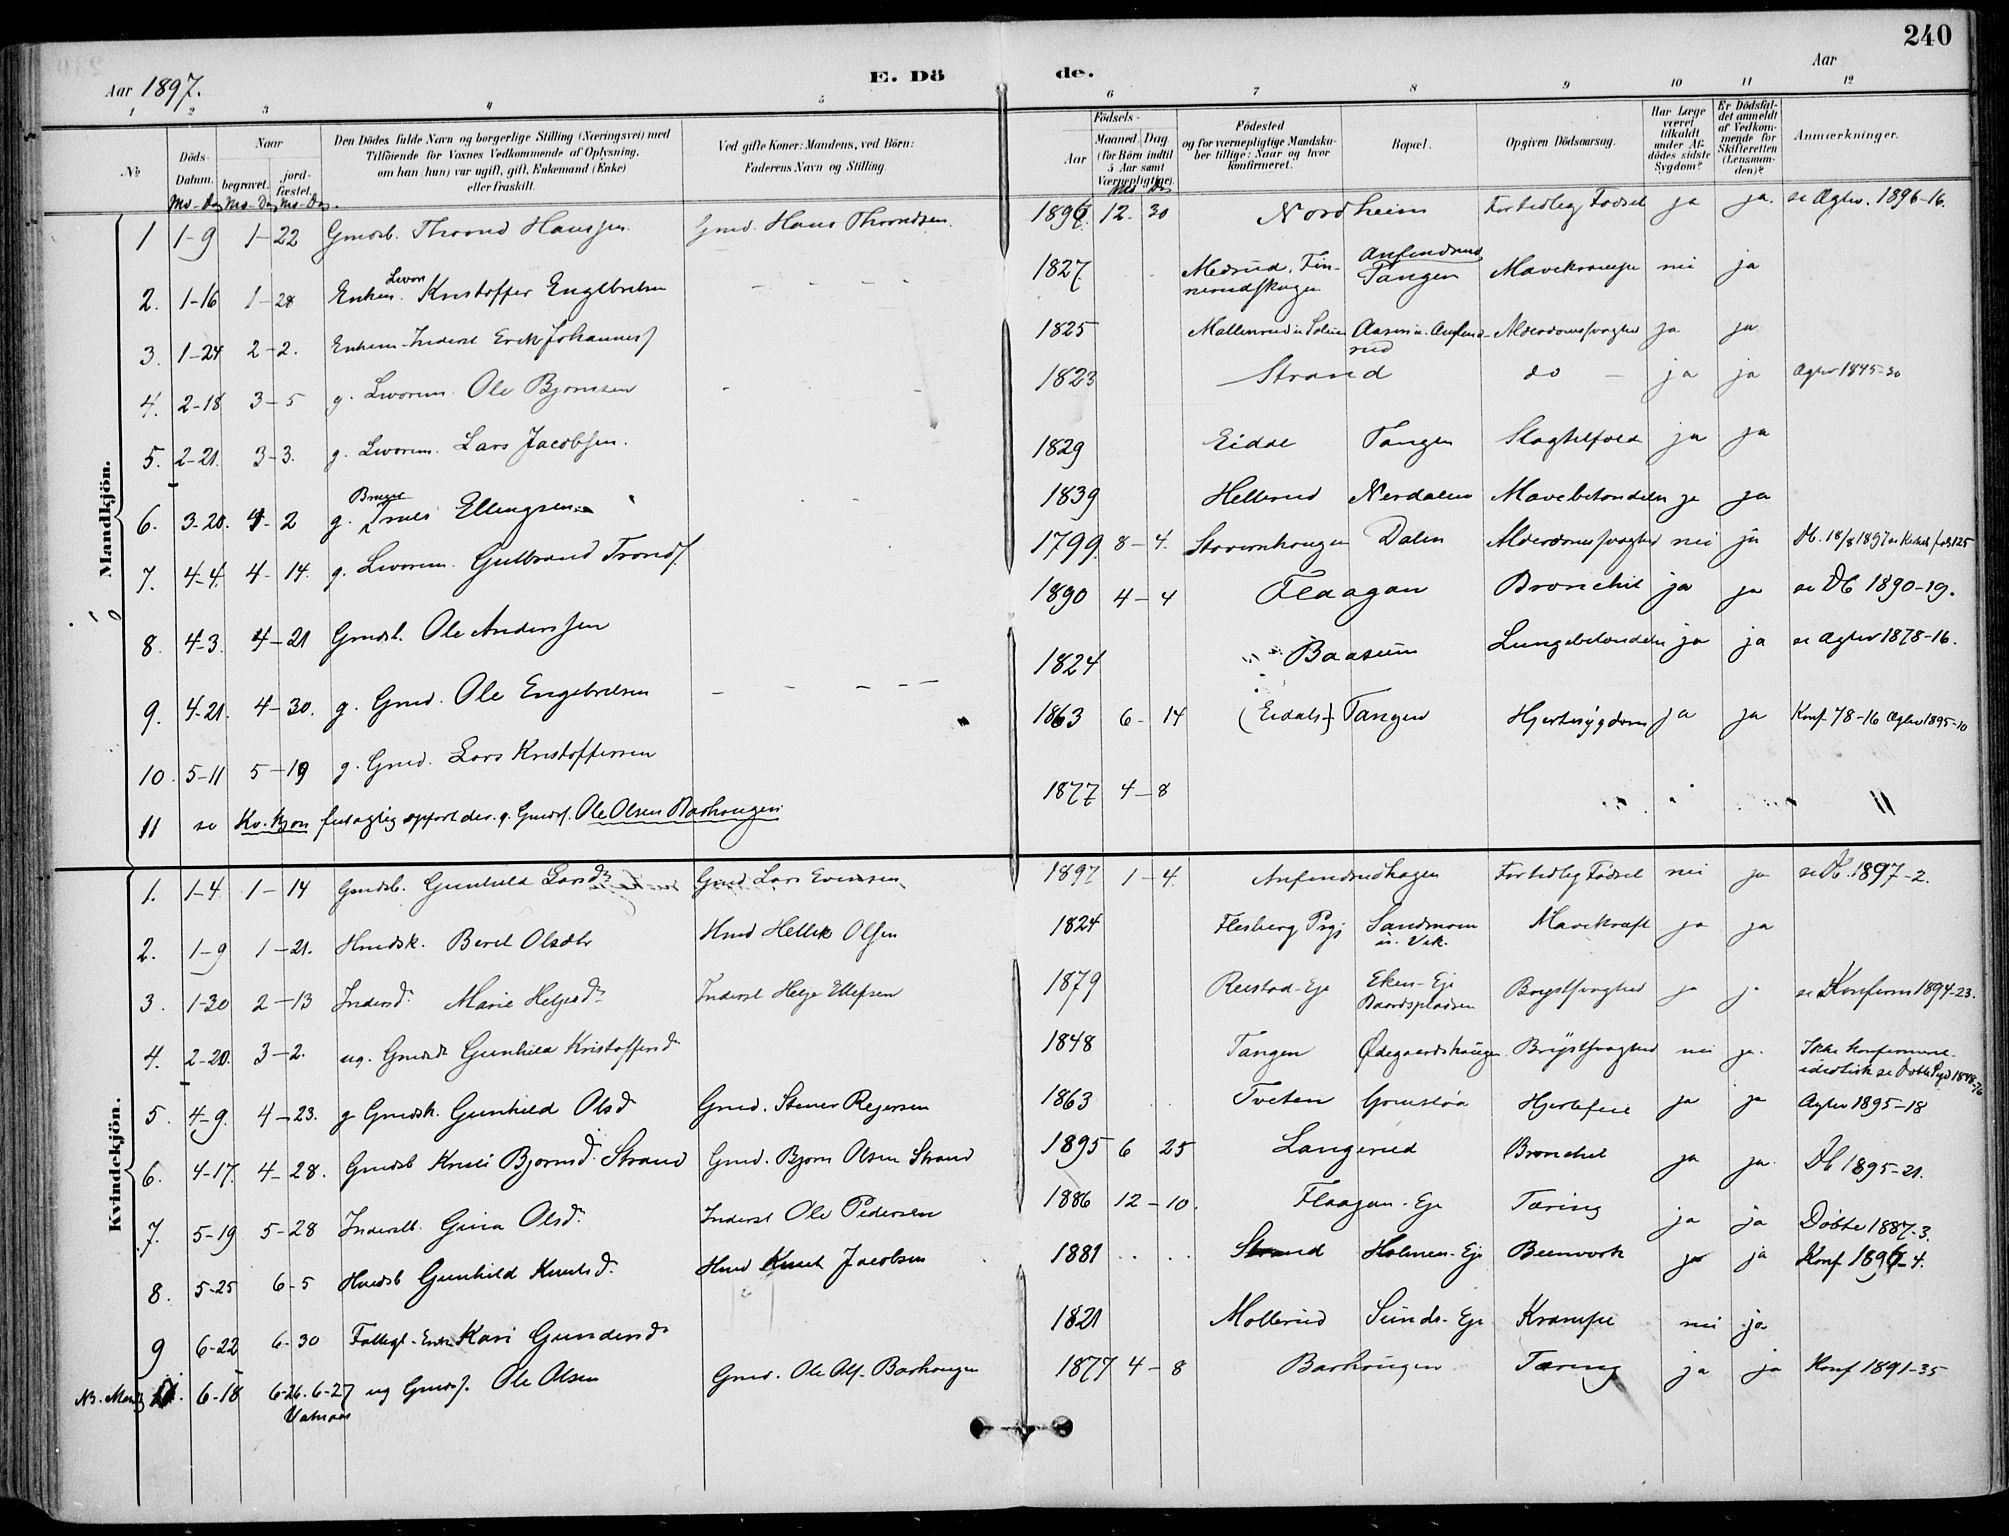 240
Aar 1897. E. Dö de. Aar
1 2 3 4 5 6 7 8 9 10 11 12
№
Döds-Datum.
Naar
begravet. jordfæstet.
Den Dödes fulde Navn og borgerlige Stilling (Næringsvei) med
Tilföiende for Voxnes Vedkommende af Oplysning,
om han (hun) var ugift, gift, Enkemand (Enke)
eller fraskilt.
Ved gifte Koner: Mandens, ved Börn:
Faderens Navn og Stilling.
Födsels-
Aar
Maaned. Dag.
(for Börn indtil
5 Aar samt
Værnepligtige)
Födested
og for værnepligtige Mandskaber tillige: Naar og hvor
konfirmeret.
Bopæl.
Opgiven Dödsaarsag.
Har Læge
været
tilkaldt
under Afdödes sidste
Sygdom?
Er Dödsfaldet anmeldt
af Vedkommende for
Skifteretten
(Lensmanden)?
Anmærkninger.
Mo-Dag Mo-Dag Mo-Dag. Mo Da
Mandkjön.
1 1-9 1-22 Gmdsb. Thrond Hanssen Gmd. Hans Throndsen. 1896 12. 30 Nordheim Fortidlig Födsel ja ja. se Agtv. 1896-16.
2. 1-16 1-28 Enkem. Kristoffer Engebretsen 1827 Medrud, Finnerudskogen Anfindsrud Tangen Mavekrampe nei ja
3. 1-24 2-2. Enkem. Inderst Erik Johannes 1825 Mallerud Aasen Alderdomssvaghed ja ja
4. 2-18 3-5 g. Livörem. Ole Bjornsen 1823 Strand do ja ja Agtv 1845-30
5. 2-21. 3-3. g. Livörem. Lars Jacobsen. 1829 Eidal Tangen Slagtilfeld ja ja
6. 3-20. 4-2 g. Ellingsen 1839 Hellerud Nerdalen Mavebetændels ja ja
7. 4-4. 4-14. g. Livörem. Gulbrand Tronds. 1799. 8-4. Stavernhaugen Dalen Alderdomssvaghed nei ja
8. 4-3. 4-21 Gmdsb. Ole Anderssen 1890 4-4 Flaagan Bronchit ja ja se Db 1890-19.
9. 4-21. 4-30. g. Gmd. Ole Engebretsen 1824 Baasum Lungebetændels ja ja se Agtv 1878-16.
10. 5-11 5-19 g. Gmd. Lars Kristoffersen 1863 6-14 (Eidals-) Tangen Hjertesygdom ja ja Konf 78-16 Agtv 1895-10
11 se Kv. kjön feilagtig opfört der. g. Gmds. Ole Olsen Barhaugen 1877 4-8 "
Kvindekjön.
1. 1-4. 1-14 Gmdsb. Gunhild Larsdr Gmd Lars Evensen 1897 1-4. Anfindsrudhagen Fortidlig Födsel nei ja se Db. 1897-2.
2. 1-9 1-21. Hmdsk. Berit Olsdtr Hmd Hellik Olsen 1824 Flesberg Prgj Sandmoen Mavekræft ja ja
3. 1-30 2-13 Indersd. Marie Helgesdr Inderst Helge Ellefsen 1879 Reistad-Eje Eken-Eje Baardspladsen Brystsvaghed ja j. se Konfirm 1894-23.
4. 2-20. 3-2. ug. Gmdsd. Gunhild Kristoffersdr 1848 Tangen Ødegaardshaugen Brystsvaghed nei ja. Ikke Konfirmeret. idiotisk se Döbte Pgd 1848-76
5. 4-9. 4-23. g Gmdsk. Gunhild Olsd Gmd. Stener Regersen 1863 Tveten Hjertefeil ja ja Agtv 1895-18
6. 4-17. 4-28. Gmdsb Kristi Bjornsd. Strand Gmd. Bjorn Olsen Strand 1895 6 25 Langerud Bronchit ja ja. Db 1895-21.
7. 5-19 5-28 Inderstb. Gina Olsd. Inderst Ole Pedersen 1886 12-10. Flaagan-Eje Tæring ja ja Döbte 1887-3.
8. 5-25 6-5 Hmdsb Gunhild Knutsd. Hmd Knut Jacobsen 1881 Strand Holmen-Eje Beenværk ja ja Konf 1896-4.
9 6-22 6-30 Fattigl.-Enke Kari Gundersdr 1821 Mollerud Sunds-Eje Krampe nei ja
NB. Mandkj 11. 6-18 6-26. 6-27 ug Gmds. Ole Olsen Gmd. Ole Ols. Barhaugen 1877 4-8 Barhaugen Tæring ja ja Konf 1891-35